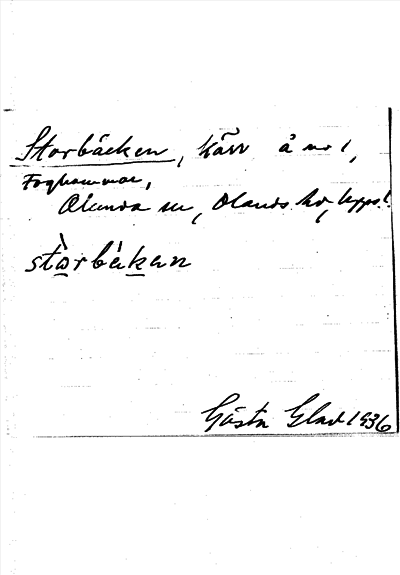 Storbäcken, kärr å no 1,
Foghammar,
Ölands hd, Upps. l.
stòrbäkan
Gösta Glad 1936